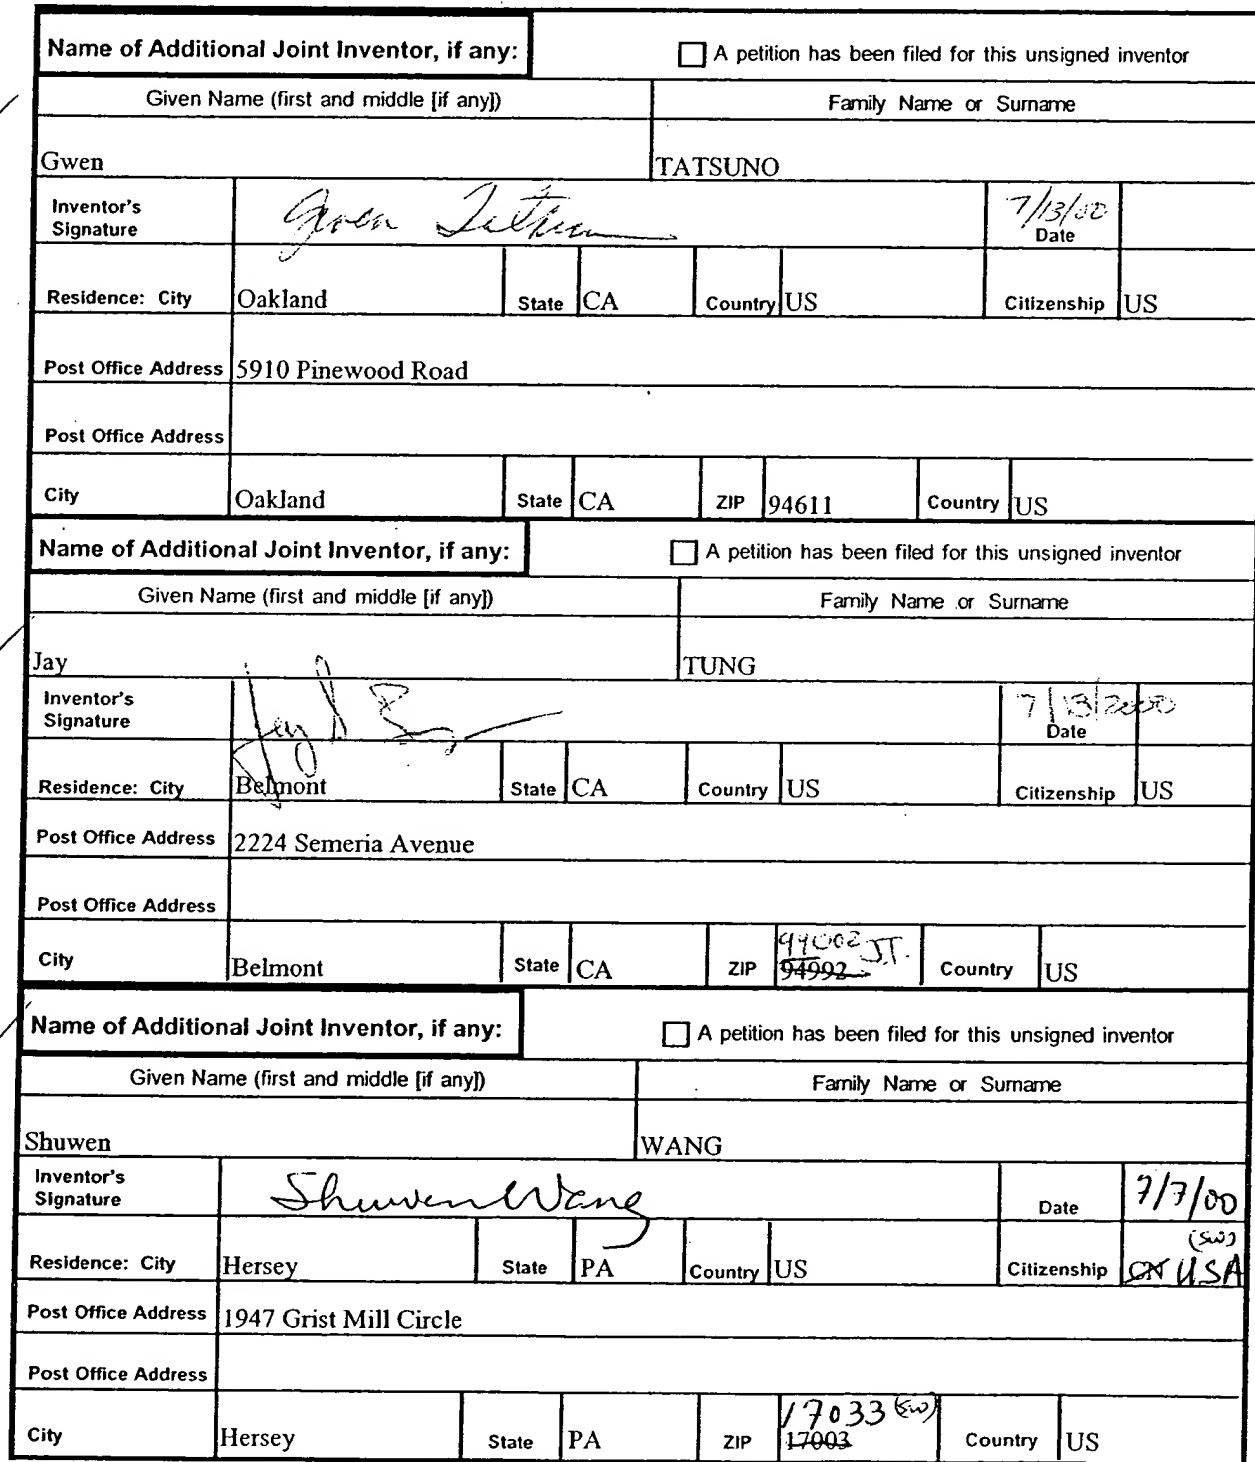 Name of Additional Joint Inventor, if any: A petition has been filed for this unsigned inventor
Given Name (first and middle [if any]) Family Name or Surname
Gwen TATSUNO
Inventor's Signature Gwen 7/13/00 Date
Residence: City Oakland State CA Country US Citizenship US
Post Office Address 5910 Pinewood Road
Post Office Address
City Oakland State CA ZIP 94611 Country US
Name of Additional Joint Inventor, if any: A petition has been filed for this unsigned inventor
Given Name (first and middle [if any]) Family Name or Surname
Jay TUNG
Inventor's Signature Jay 7/13/2000 Date
Residence: City Belmont State CA Country US Citizenship US
Post Office Address 2224 Semeria Avenue
Post Office Address
94002 J.T.
City Belmont State CA ZIP 94992 Country US
Name of Additional Joint Inventor, if any: A petition has been filed for this unsigned inventor
Given Name (first and middle [if any]) Family Name or Surname
Shuwen WANG
Inventor's Signature Shuwen Wang Date 7/7/00
(SW)
Residence: City Hersey State PA Country US Citizenship CN USA
Post Office Address 1947 Grist Mill Circle
Post Office Address
17033 (SW)
City Hersey State PA ZIP 17003 Country US